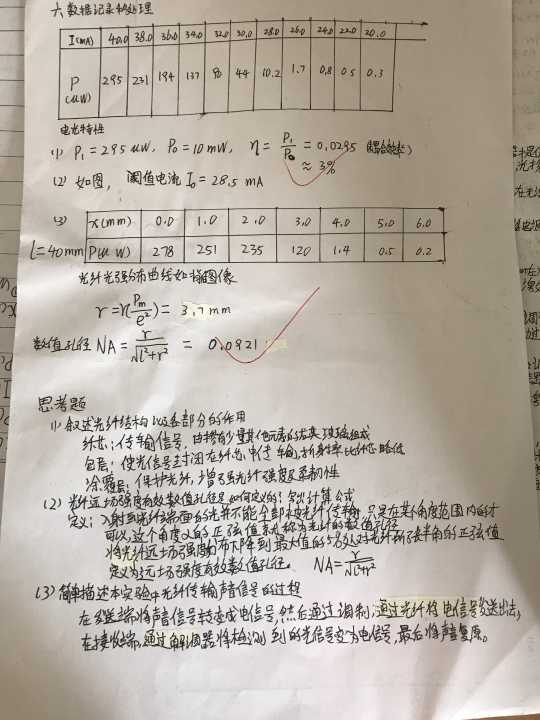 六.数据记录和处理
I(mA) 40.0 38.0 36.0 34.0 32.0 30.0 28.0 26.0 24.0 22.0 20.0
P(μW) 295 231 194 137 90 44 10.2 1.7 0.8 0.5 0.3
电光特性
(1) P₁=295μW, P₀=10mW, η= P₁/P₀ = 0.0295 (耦合效率)
≈3%
(2) 如图, 阈值电流 I₀=28.5 mA
(3) x(mm) 0.0 1.0 2.0 3.0 4.0 5.0 6.0
l=40mm P(μW) 278 251 235 120 1.4 0.5 0.2
光纤光强分布曲线如图像
r=r(Pm/e²)= 3.7mm
数值孔径 NA= r/√l²+r² = 0.0921
思考题
(1) 叙述光纤结构以及各部分的作用
纤芯:传输信号,由掺有少量其他元素的石英玻璃组成
包层:使光信号封闭在纤芯中传输,折射率比纤芯略低
涂覆层:保护光纤,增强光纤强度及柔韧性
(2) 光纤远场强度有效数值孔径是如何定义的?给出计算公式
定义:入射到光纤端面的光并不能全部被光纤传输,只是在某个角度范围内的才
可以,这个角度α的正弦值就称为光纤的数值孔径
将光纤远场强度分布下降到最大值的5%处对光纤所张半角的正弦值
定义为远场强度有效数值孔径. NA= r/√l²+r²
(3) 简单描述本实验中光纤传输声音信号的过程
在发送端,将声音信号转变成电信号,然后通过调制,通过光纤将电信号发送出去,
在接收端,通过解调器将检测到的光信号变为电信号,最后将声音复原。